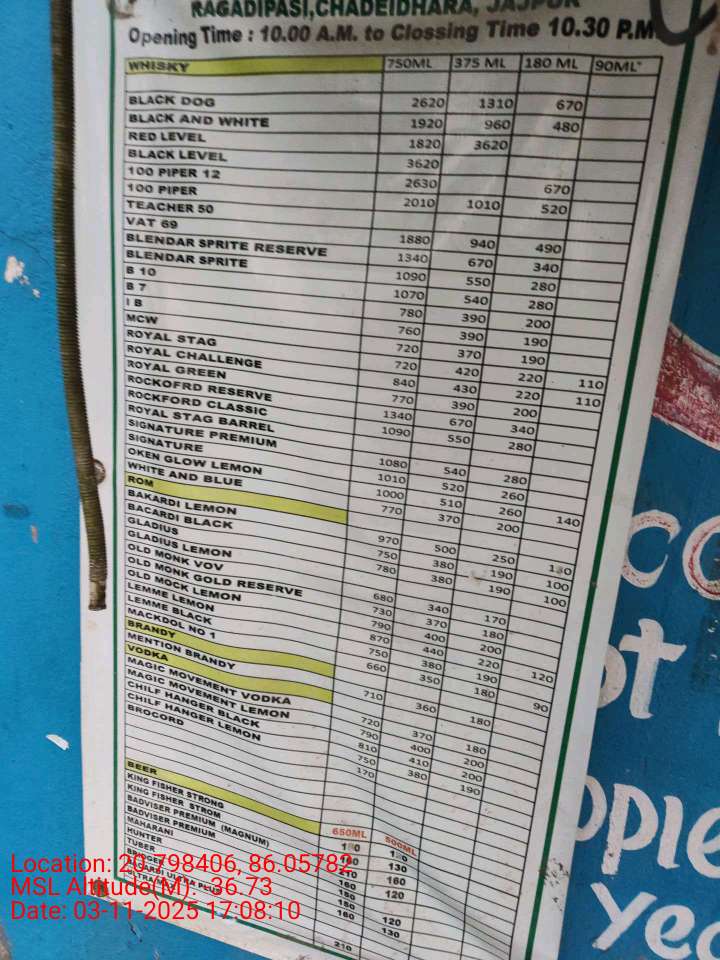 RAGADIPASI,CHADEIDHARA, JAJPUR
Opening Time : 10.00 A.M. to Clossing Time 10.30 P.M
WHISKY 750ML 375 ML 180 ML 90ML
BLACK DOG 2620 1310 670
BLACK AND WHITE 1920 960 480
RED LEVEL 1820 3620
BLACK LEVEL 3620
100 PIPER 12 2630 670
100 PIPER 2010 1010 520
TEACHER 50
VAT 69 1880 940 490
BLENDAR SPRITE RESERVE 1340 670 340
BLENDAR SPRITE 1090 550 280
B 10 1070 540 280
B 7 780 390 200
I B 760 390 190
MCW 720 370 190
ROYAL STAG 720 420 220 110
ROYAL CHALLENGE 840 430 220 110
ROYAL GREEN 770 390 200
ROCKOFRD RESERVE 1340 670 340
ROCKFORD CLASSIC 1090 550 280
ROYAL STAG BARREL
SIGNATURE PREMIUM 1080 540 280
SIGNATURE 1010 520 260
OKEN GLOW LEMON 1000 510 260 140
WHITE AND BLUE 770 370 200
ROM
BAKARDI LEMON 970 500 250
BACARDI BLACK 750 380 190 100
GLADIUS 780 380 190 100
GLADIUS LEMON
OLD MONK VOV 680 340 170
OLD MONK GOLD RESERVE 730 370 180
OLD MOCK LEMON 790 400 200
LEMME LEMON 870 440 220 120
LEMME BLACK 750 380 190
MACKDOL NO 1 660 350 180 90
BRANDY
MENTION BRANDY 710 360 180
VODKA
MAGIC MOVEMENT VODKA 720 370 180
MAGIC MOVEMENT LEMON 790 400 200
CHILF HANGER BLACK 810 410 200
CHILF HANGER LEMON 750 380 190
BROCORD 170
BEER 650ML 500ML
KING FISHER STRONG
KING FISHER STROM 160 130
BADVISER PREMIUM (MAGNUM) 160
BADVISER PREMIUM 160 120
MAHARANI
HUNTER
TUBER 160 120
130
210
Location: 20.798406, 86.05782
MSL Altitude(M): -36.73
Date: 03-11-2025 17:08:10